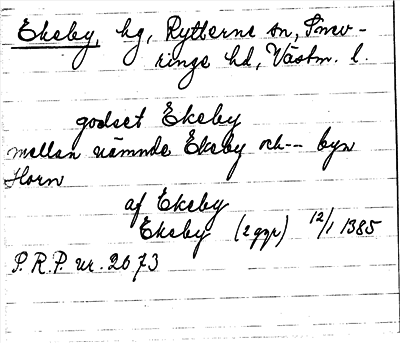 Ekeby, hg, Rytterne sn, Snev-
ringe hd, Västm. l.
godset Ekeby
mellan nämnde Ekeby och -- byn
Horn
af Ekeby
Ekeby (2 ggr) 12/1 1385
P.R.P. nr. 2073